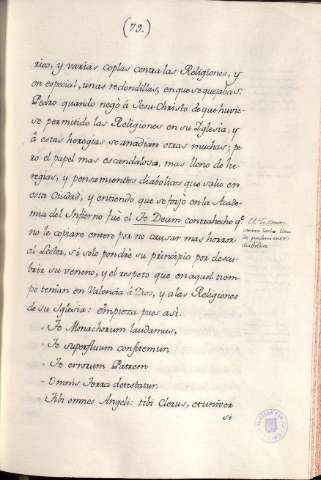 (79.)
rico, y varias coplas contra las Religiones, y
en especial, unas redondillas, en que se quejaba S.
Pedro quando negò à Jesu-Christo de que huvie-
se permitido las Religiones en su Iglesia; y
à estas heregias se anadian otras muchas; pe
ro el papel mas escandaloso, mas lleno de he-
regias, y pensamientos diabolicos que salio en
esta Ciudad, y entiendo que se forjò en la Acade-
mia del Infierno fue el Te Deum contrahecho q.e
no le copiarè entero por no causar mas horror
al Lector, si solo pondrè su principio por descu-
brir su veneno, y el respeto que en aquel tiem-
po tenian en Valencia à Dios, y a las Religiones
de su Iglesia: Empieza pues asi.
El Te Deum
contra
diabolico
- Te Monachorum laudamus,
- Te superfluum confitemur.
- Te errorum Patrem
- Omnis terra detestatur.
- Tibi omnes Angeli: tibi Clerus, et univer
si